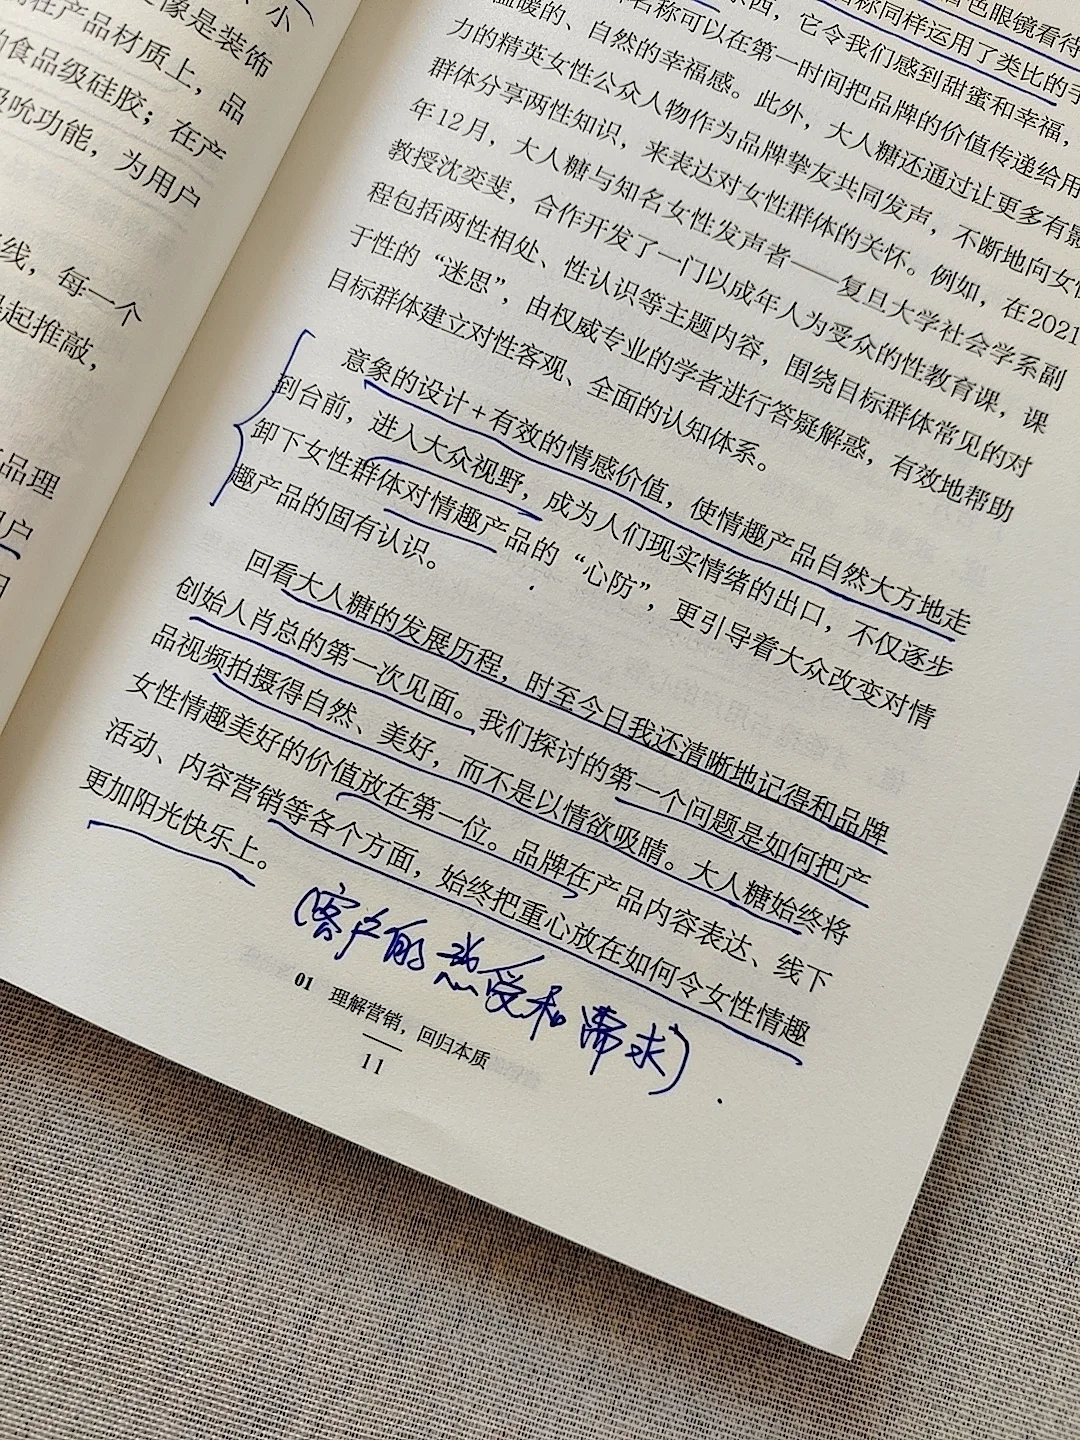 、小
像是装饰
在产品材质上，品
食品级硅胶；在产
吮功能，为用户
线，每一个
起推敲，
品理
户
色眼镜看待
名称同样运用了类比的手
西，它令我们感到甜蜜和幸福，
名称可以在第一时间把品牌的价值传递给用
温暖的、自然的幸福感。此外，大人糖还通过让更多有影
力的精英女性公众人物作为品牌挚友共同发声，不断地向女性
群体分享两性知识，来表达对女性群体的关怀。例如，在2021
年12月，大人糖与知名女性发声者——复旦大学社会学系副
教授沈奕斐，合作开发了一门以成年人为受众的性教育课，课
程包括两性相处、性认识等主题内容，围绕目标群体常见的对
于性的“迷思”，由权威专业的学者进行答疑解惑，有效地帮助
目标群体建立对性客观、全面的认知体系。
意象的设计+有效的情感价值，使情趣产品自然大方地走
到台前，进入大众视野，成为人们现实情绪的出口，不仅逐步
卸下女性群体对情趣产品的“心防”，更引导着大众改变对情
趣产品的固有认识。
回看大人糖的发展历程，时至今日我还清晰地记得和品牌
创始人肖总的第一次见面。我们探讨的第一个问题是如何把产
品视频拍摄得自然、美好，而不是以情欲吸睛。大人糖始终将
女性情趣美好的价值放在第一位。品牌在产品内容表达、线下
活动、内容营销等各个方面，始终把重心放在如何令女性情趣
更加阳光快乐上。
(客户的感受和需求)
01 理解营销，回归本质
11